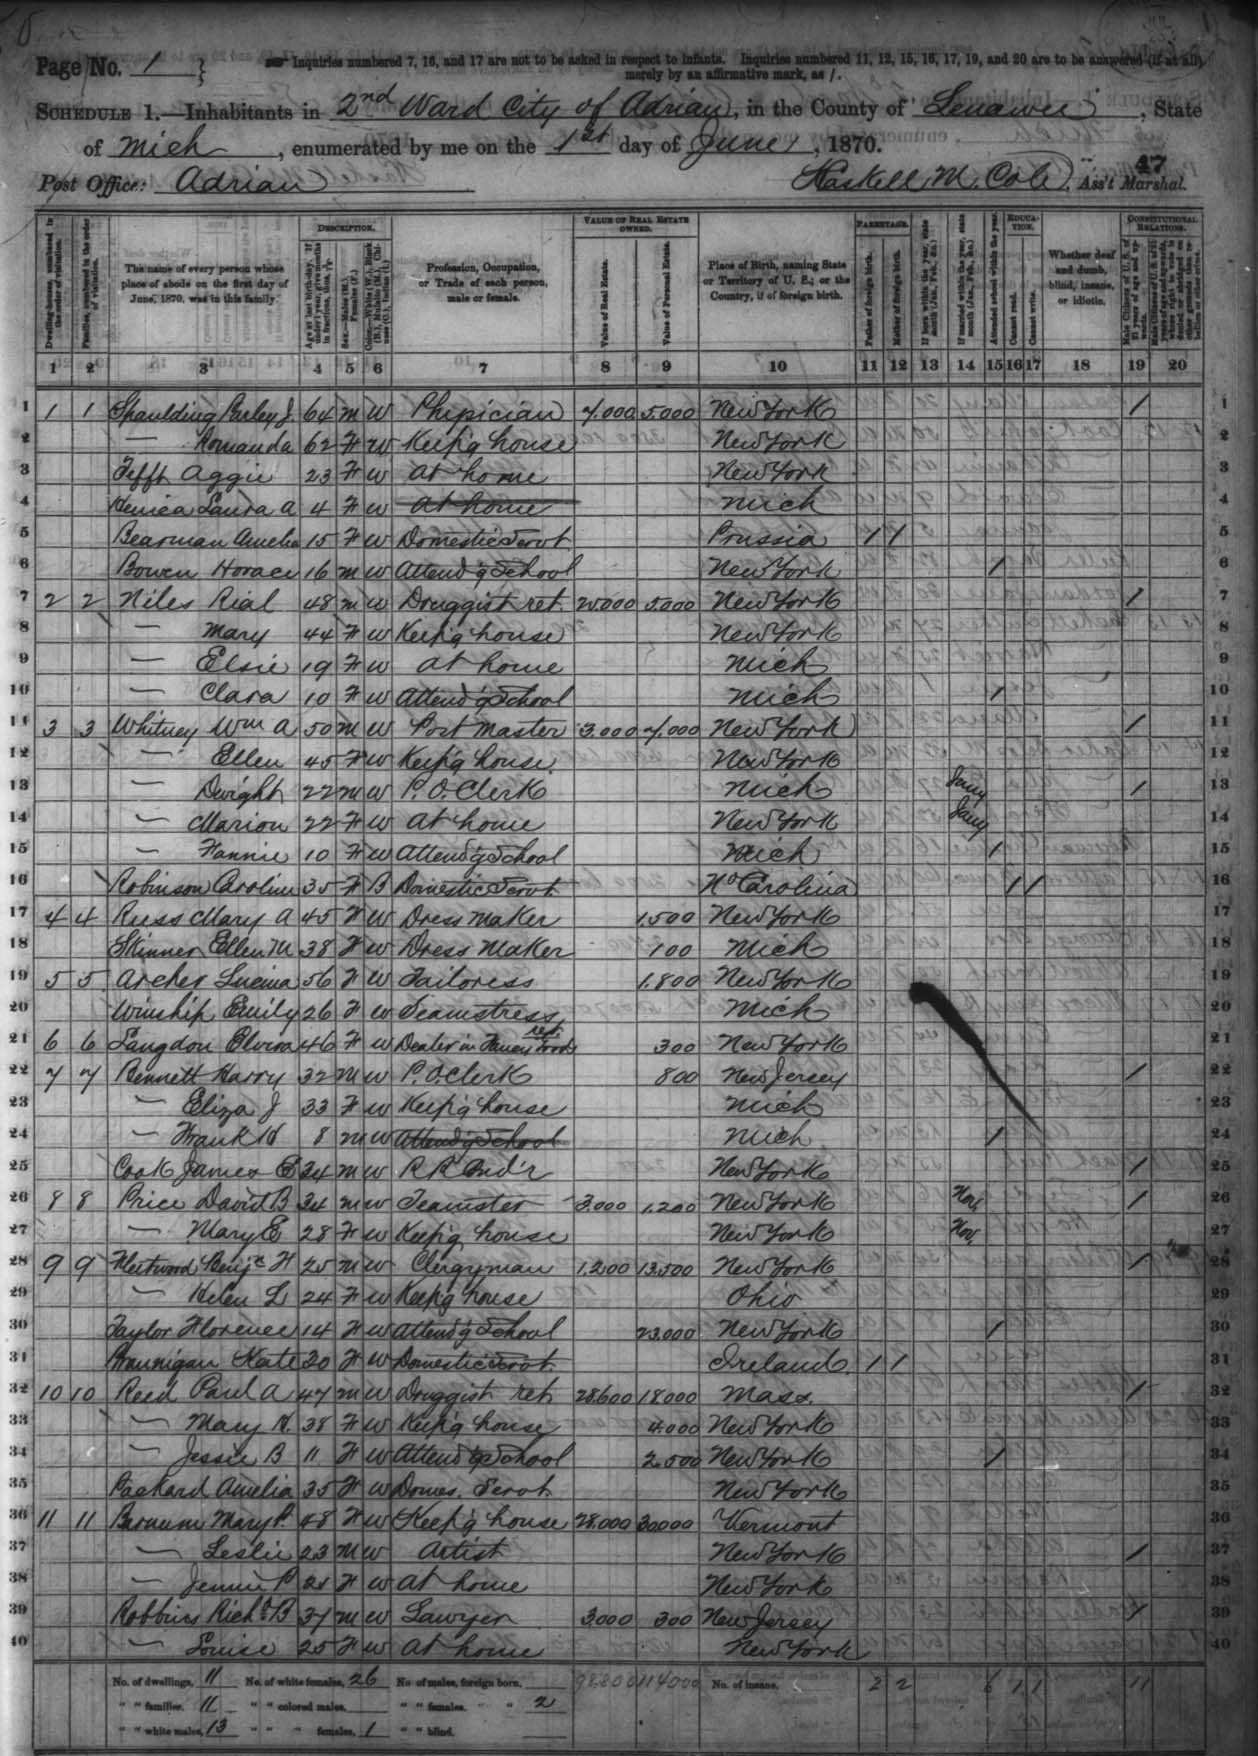 Page No. 1 } Inquiries numbered 7, 16, and 17 are not to be asked in respect to infants. Inquiries numbered 11, 12, 15, 16, 17, 19, and 20 are to be answered (if at all)
merely by an affirmative mark, as /.
SCHEDULE 1.—Inhabitants in 2nd Ward City of Adrian, in the County of Lenawee, State
of Mich, enumerated by me on the 1st day of June, 1870.
47
Post Office: Adrian Haskell M. Cole, Ass't Marshal.
Dwelling-houses, numbered in the order of visitation.
Families, numbered in the order of visitation.
The name of every person whose place of abode on the first day of June, 1870, was in this family.
DESCRIPTION.
Profession, Occupation, or Trade of each person, male or female.
VALUE OF REAL ESTATE OWNED.
Value of Real Estate.
Value of Personal Estate.
Place of Birth, naming State or Territory of U. S.; or the Country, if of foreign birth.
PARENTAGE.
Father of foreign birth.
Mother of foreign birth.
If born within the year, state month (Jan., Feb., &c.)
If married within the year, state month (Jan., Feb., &c.)
Attended school within the year.
EDUCATION.
Cannot read.
Cannot write.
Whether deaf and dumb, blind, insane, or idiotic.
CONSTITUTIONAL RELATIONS.
1 2 3 4 5 6 7 8 9 10 11 12 13 14 15 16 17 18 19 20
1 1 1 Spaulding Parley J 64 M W Phypician 7.000 5.000 New York / 1
2 — 62 F W Keep'g house New York 2
3 Tefft Aggie 23 F W At home New York 3
4 Laura A 4 F W At home Mich 4
5 Bearman Amelia 15 F W Domestic Servt. Prussia / / 5
6 Bowen Horace 16 M W Attend'g School New York / 6
7 2 2 Niles Rial 48 M W Druggist ret. 20.000 5.000 New York / 7
8 — Mary 44 F W Keep'g house New York 8
9 — Elsie 19 F W At home Mich 9
10 — Clara 10 F W Attend'g School Mich / 10
11 3 3 Whitney Wm A 50 M W Post Master 3.000 7.000 New York / 11
12 — Ellen 45 F W Keep'g house New York 12
13 — Dwight 22 M W P. O. Clerk Mich Jany / 13
14 — Marion 22 F W At home New York Jany 14
15 — Fannie 10 F W Attend'g School Mich / 15
16 Robinson Caroline 35 F B Domestic Servt. No Carolina / / 16
17 4 4 Russ Mary A 45 F W Dress Maker 1.500 New York 17
18 Skinner Ellen M 38 F W Dress Maker 100 Mich 18
19 5 5 Archer Lucina 56 F W Tailoress 1.800 New York 19
20 Winship Emily 26 F W Seamstress Mich 20
21 6 6 Langdon Elvira 46 F W Dealer in Fancy Goods ret. 300 New York 21
22 7 7 Bennett Harry 32 M W P. O. Clerk 800 New Jersey / 22
23 — Eliza J 33 F W Keep'g house Mich 23
24 — Frank H 8 M W Attend'g School Mich / 24
25 Cook James E 34 M W R. R. New York / 25
26 8 8 Price David B 34 M W Teamster 3.000 1.200 New York Nov. / 26
27 — Mary E 28 F W Keep'g house New York Nov. 27
28 9 9 Fleetwood Benj. F 25 M W Clergyman 1.200 13.500 New York / 28
29 — Helen L 24 F W Keep'g house Ohio 29
30 Taylor Florence 14 F W Attend'g School 23.000 New York / 30
31 Brannigan Kate 20 F W Domestic Servt. Ireland / / 31
32 10 10 Reed Paul A 47 M W Druggist ret. 28.600 18.000 Mass. / 32
33 — Mary H. 38 F W Keep'g house 4.000 New York 33
34 — Jessie B 11 F W Attend'g School 2.500 New York / 34
35 Packard Amelia 35 F W Domes. Servt. New York 35
36 11 11 Barnum Mary P. 48 F W Keep'g house 28.000 30000 Vermont 36
37 — Leslie 23 M W Artist New York / 37
38 — Jennie P 21 F W At home New York 38
39 Robbins Richd B 37 M W Lawyer 3.000 300 New Jersey / 39
40 — Louise 25 F W At home New York 40
No. of dwellings, 11 No. of white females, 26 No. of males, foreign born, 98800 114000 No. of insane. 2 2 6 1 1 11
" " families. 11 " " colored males. " " females. " " 2
" " white males, 13 " " " females, 1 " " blind.